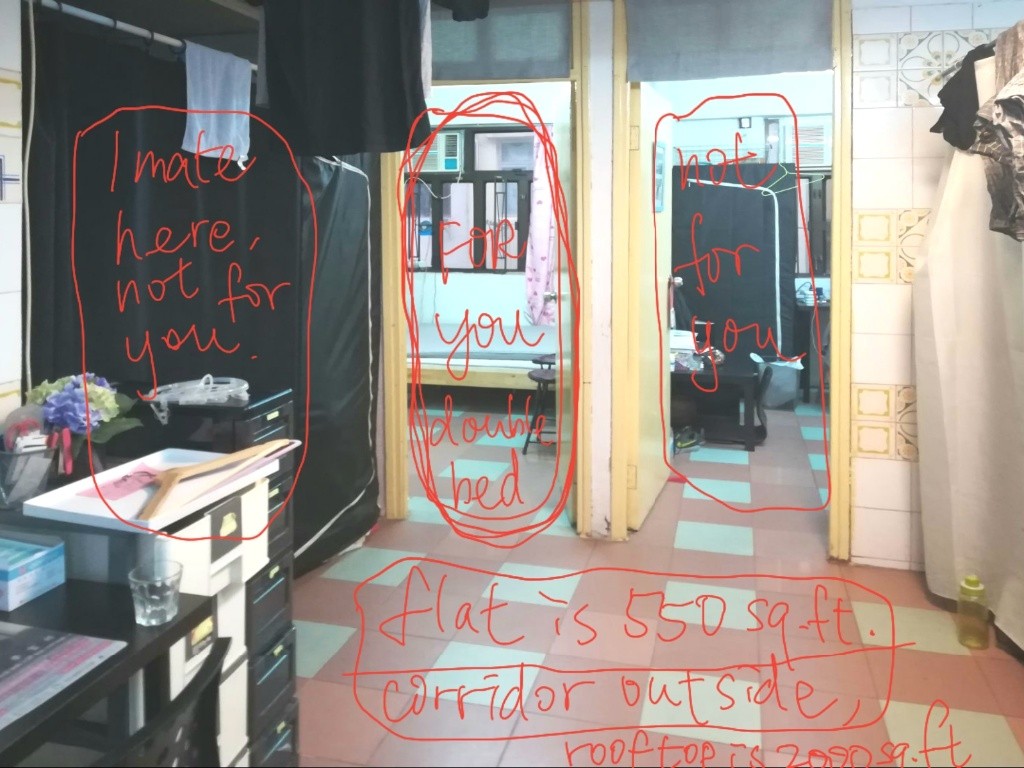 1 mate
here,
not for
you.
for
you
double
bed
not
for
you
flat is 550 sq.ft.
corridor outside,
rooftop is 2000 sq.ft